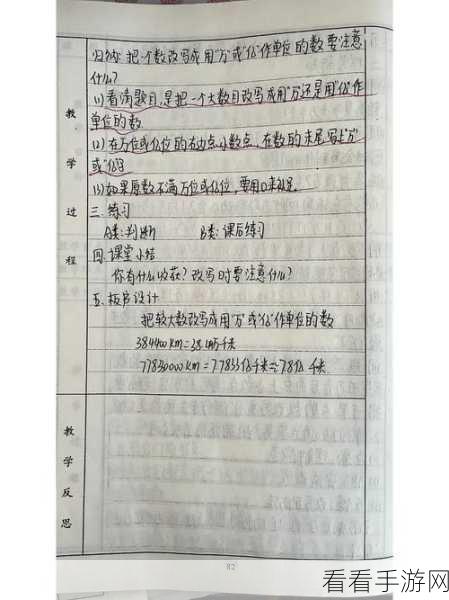 归纳: 把一个数改写成用"万"或"亿"作单位的数要注意
什么?
(1)看清题目,是把一个大数目改写成用"万"还是用"亿"作
单位的数.
(2)在万位或亿位的右边点小数点,在数的末尾写上"万"
或"亿"字
(3)如果原数不满万位或亿位,要用0来补足。
三. 练习
A类:判断 B类:课后练习
四.课堂小结
你有什么收获?改写时要注意什么?
五.板书设计
把较大数改写成用"万"或"亿"作单位的数
384400km=38.44万千米
≈7.8亿千米
教学过程
教学反思
82
看看手游网